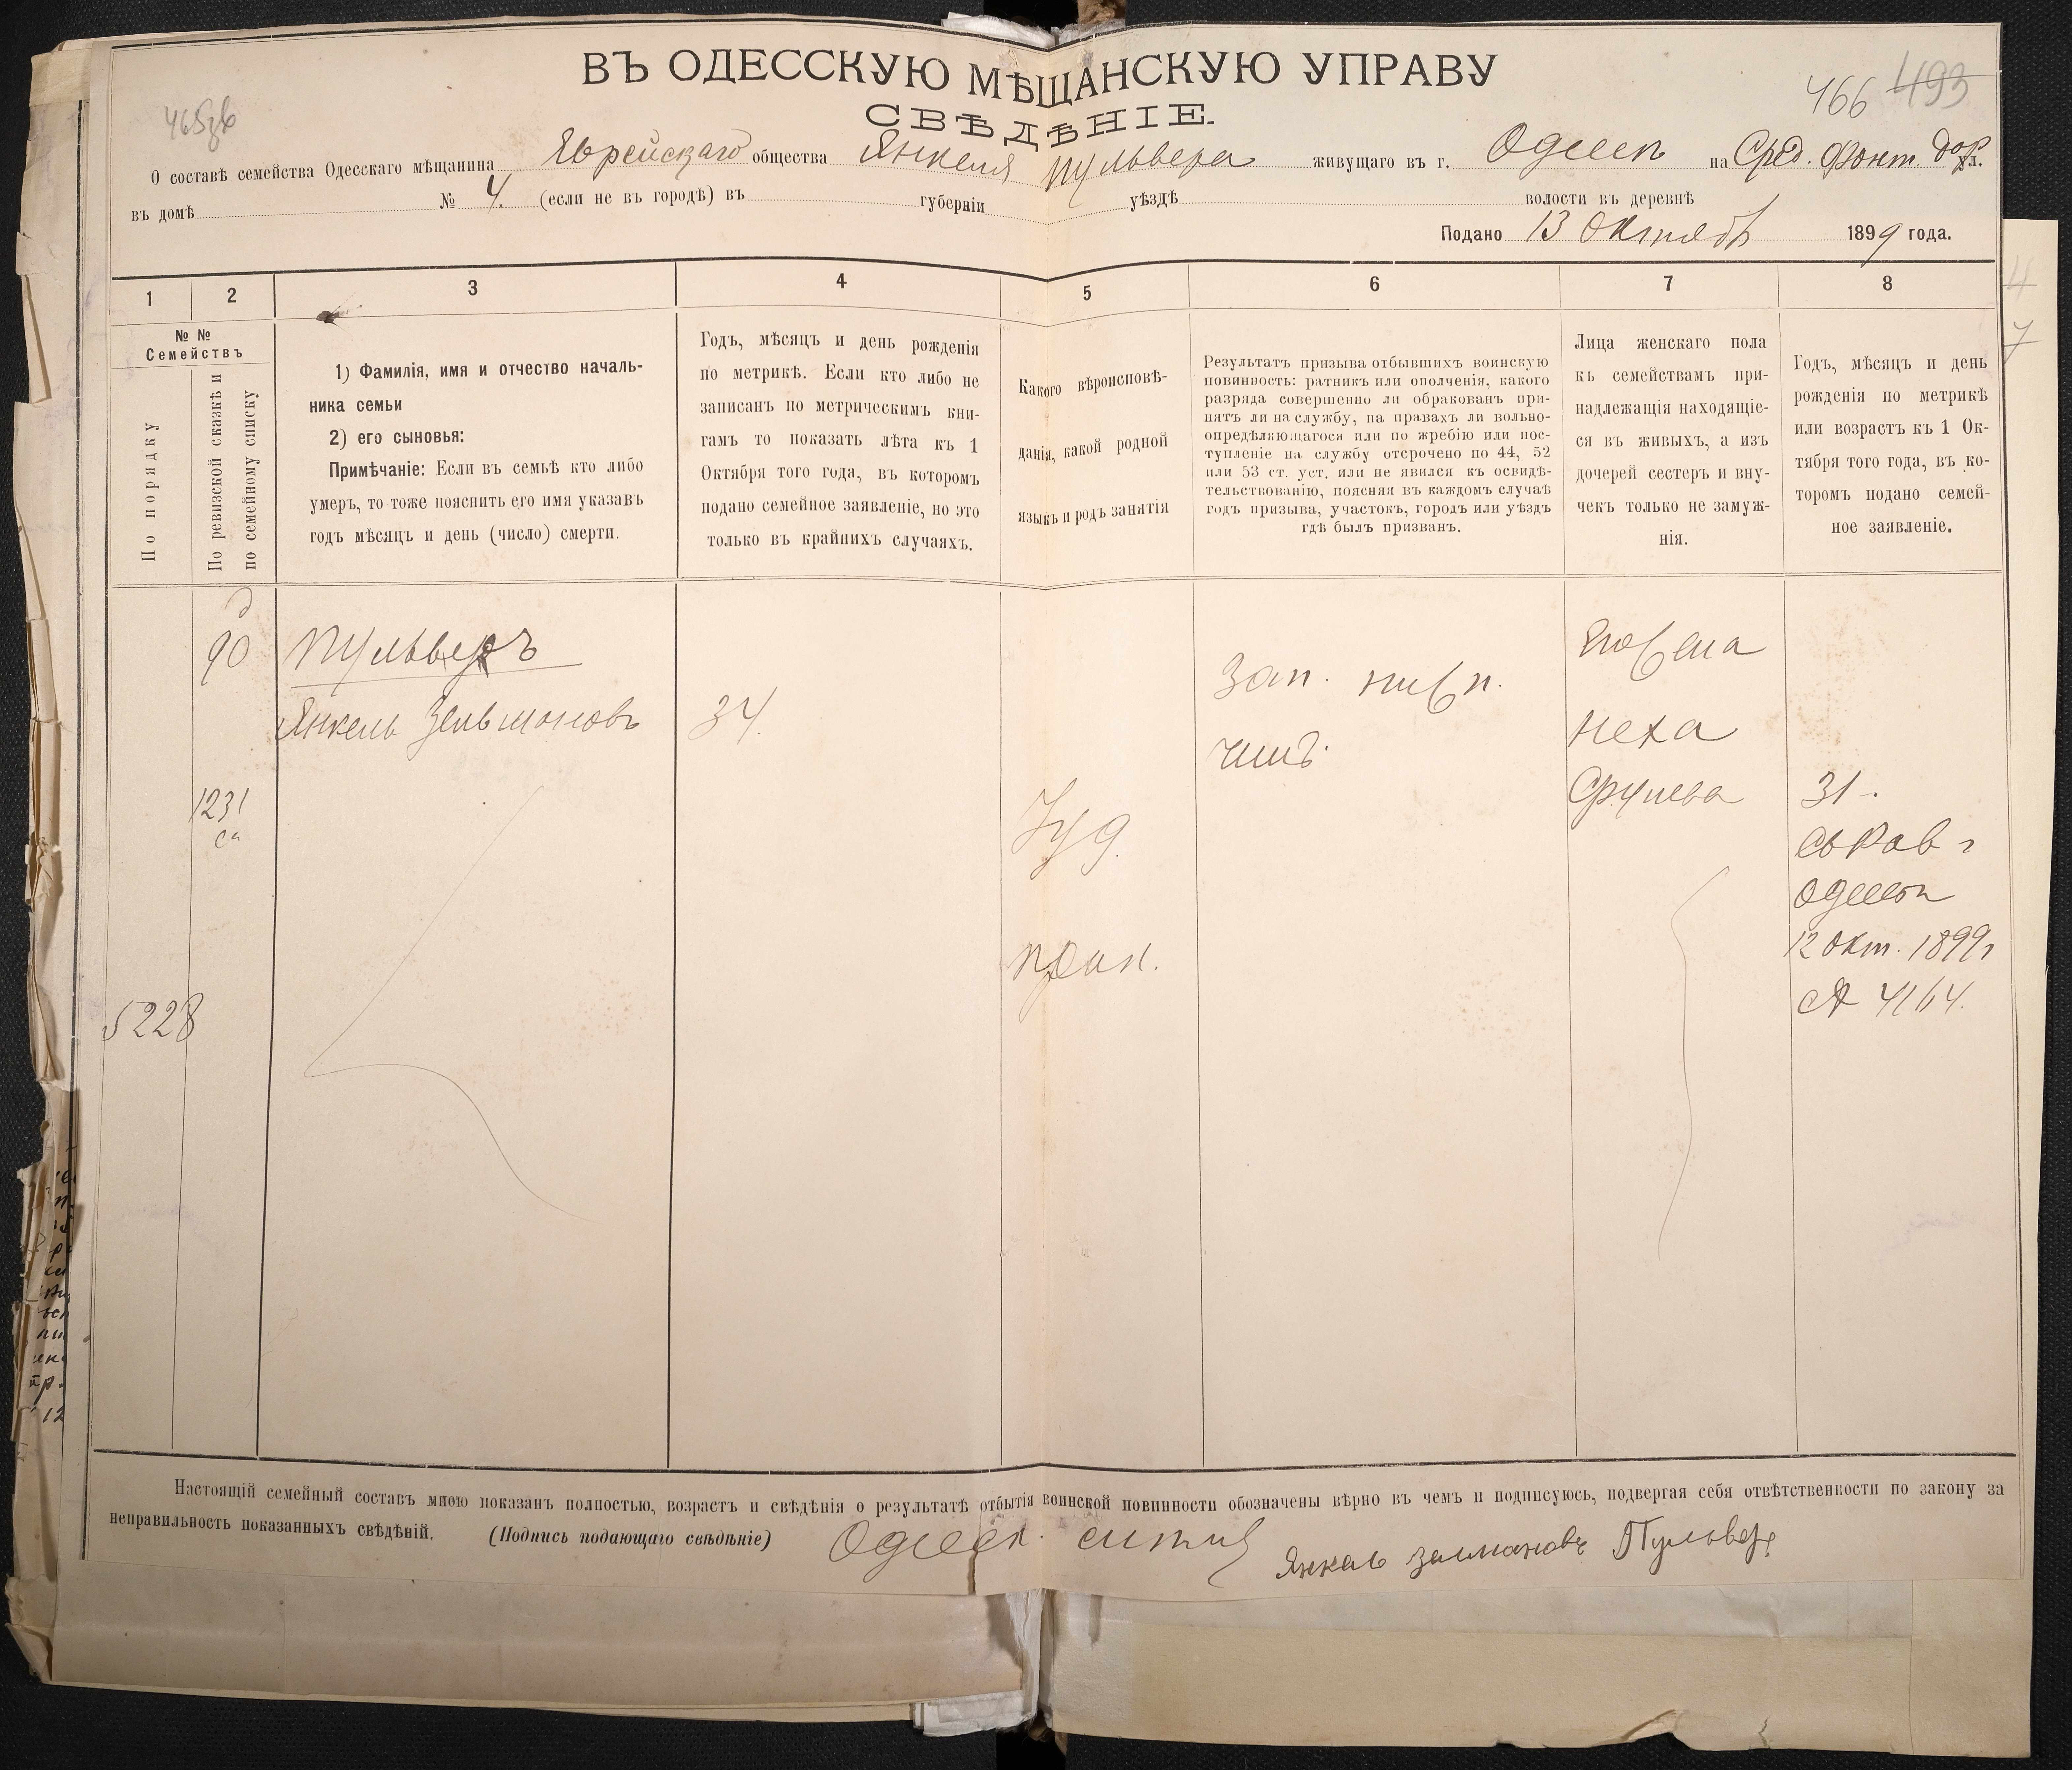 ВЪ ОДЕССКУЮ МѢЩАНСКУЮ УПРАВУ
466 493
СВѢДѢНІЕ.
О составѣ семейства Одесскаго мѣщанина Еврейскаго общества Янкеля Пульвера живущаго въ г. Одессѣ на Сред. Фонт. дор ул.
въ домѣ № 4. (если не въ городѣ) въ губерніи уѣздѣ волости въ деревнѣ
Подано 13 Октяб 1899 года.
1 2 3 4 5 6 7 8
№ №
Семействъ
По порядку
По ревизской сказкѣ и
по семейному списку
1) Фамилія, имя и отчество началь-
ника семьи
2) его сыновья:
Примѣчаніе: Если въ семьѣ кто либо
умеръ, то тоже пояснить его имя указавъ
годъ мѣсяцъ и день (число) смерти.
Годъ, мѣсяцъ и день рожденія
по метрикѣ. Если кто либо не
записанъ по метрическимъ кни-
гамъ то показать лѣта къ 1
Октября того года, въ которомъ
подано семейное заявленіе, но это
только въ крайнихъ случаяхъ.
Какого вѣроисповѣ-
данія, какой родной
языкъ и родъ занятія
Результатъ призыва отбывшихъ воинскую
повинность: ратникъ или ополченія, какого
разряда совершенно ли обракованъ при-
нятъ ли на службу, на правахъ ли вольно-
опредѣляющагося или по жребію или пос-
тупленіе на службу отсрочено по 44, 52
или 53 ст. уст. или не явился къ освидѣ-
тельствованію, поясняя въ каждомъ случаѣ
годъ призыва, участокъ, городъ или уѣздъ
гдѣ былъ призванъ.
Лица женскаго пола
къ семействамъ при-
надлежащія находящіе-
ся въ живыхъ, а изъ
дочерей сестеръ и вну-
чекъ только не замуж-
нія.
Годъ, мѣсяцъ и день
рожденія по метрикѣ
или возрастъ къ 1 Ок-
тября того года, въ ко-
торомъ подано семей-
ное заявленіе.
90
Пульверъ
Янкель Зельмановъ
34.
Зап.
Его жена
Неха
1231
Іуд.
31
Одессы
12 Окт. 1899 г
№ 4164.
5228
Настоящій семейный составъ мною показанъ полностью, возрастъ и свѣдѣнія о результатѣ отбытія воинской повинности обозначены вѣрно въ чемъ и подписуюсь, подвергая себя отвѣтственности по закону за
неправильность показанныхъ свѣдѣній. (Подпись подающаго свѣдѣніе) Одесск.
Янкель Залмановъ Пульвер